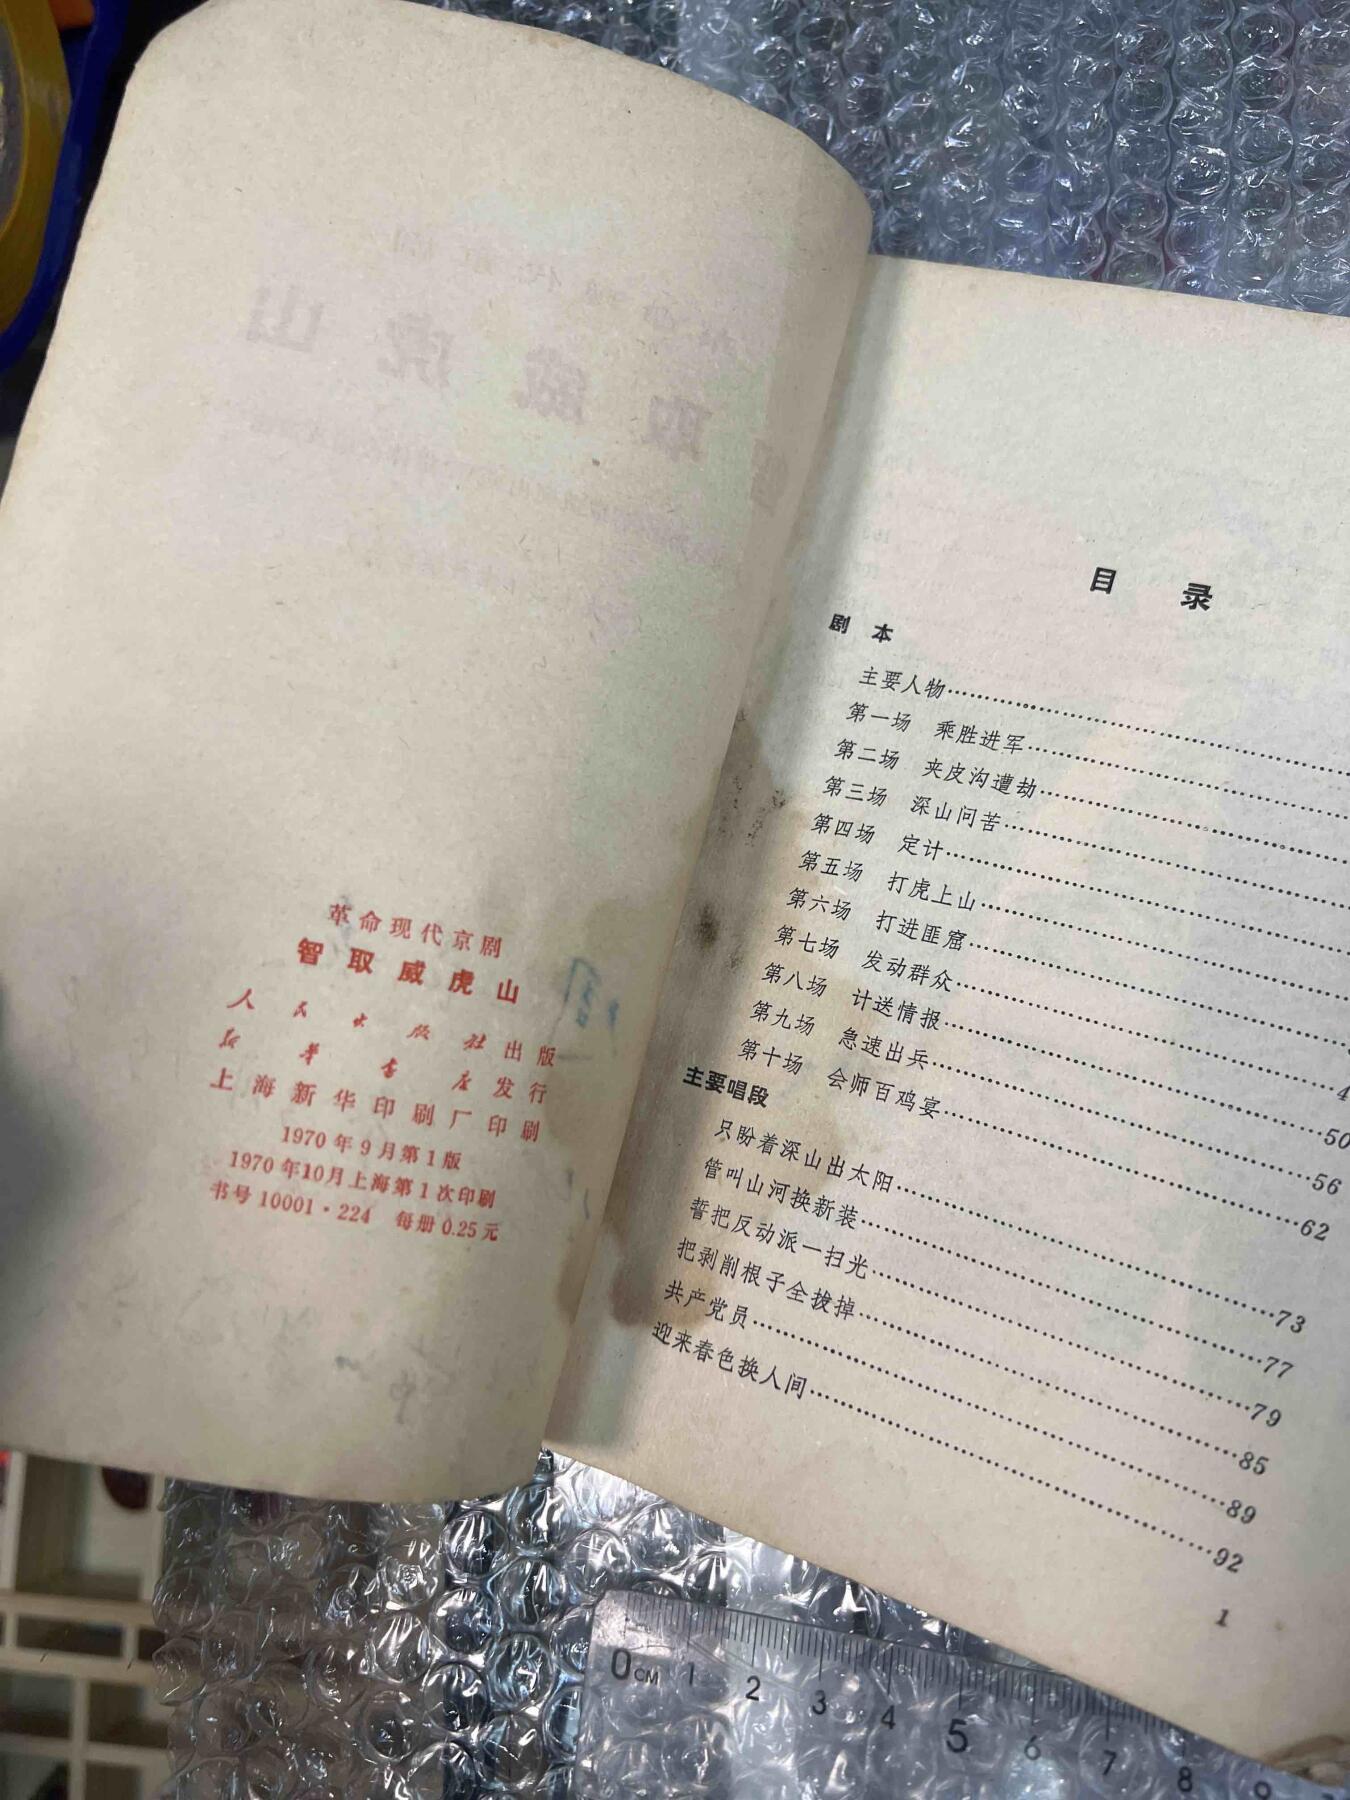 革命现代京剧
智取威虎山
人民出版社出版
新华书店发行
上海新华印刷厂印刷
1970年9月第1版
1970年10月上海第1次印刷
书号10001·224 每册0.25元
目 录
剧 本
主要人物……
第一场 乘胜进军……
第二场 夹皮沟遭劫……
第三场 深山问苦……
第四场 定计……
第五场 打虎上山……
第六场 打进匪窟……
第七场 发动群众……
第八场 计送情报……50
第九场 急速出兵……56
第十场 会师百鸡宴……62
主要唱段
只盼着深山出太阳……73
管叫山河换新装……77
誓把反动派一扫光……79
把剥削根子全拔掉……85
共产党员……89
迎来春色换人间……92
1
0CM 1 2 3 4 5 6 7 8 9